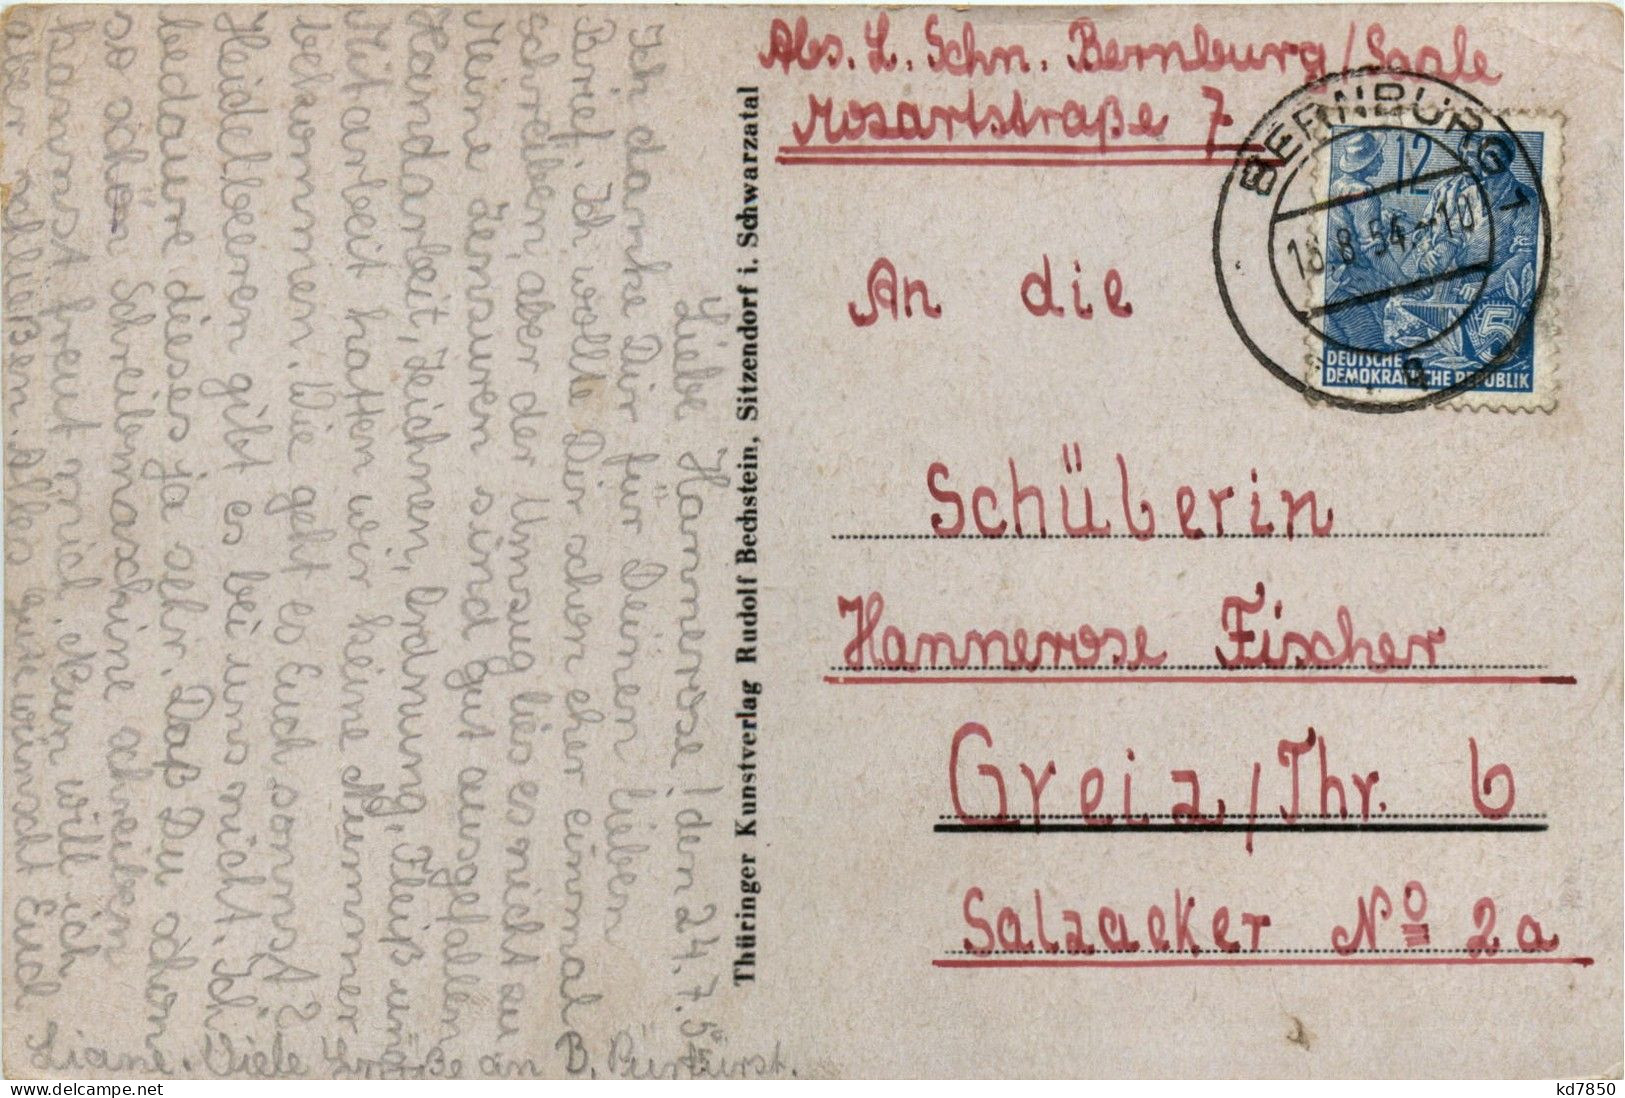 Abs. L. Schn. Bernburg/Saale
Mosartstraße 7
BERNBURG 1
18.8.54.-10
a
12
5
DEUTSCHE
DEMOKRATISCHE REPUBLIK
An die
Schüberin
Hannerose Fischer
Greiz/Thr. 6
Salzacker No 2a
Thüringer Kunstverlag Rudolf Bechstein, Sitzendorf i. Schwarzatal
Liebe Hannerose! den 24.7.54
Ich danke Dir für Deinen lieben
Brief. Ich wollte Dir schon eher einmal
schreiben, aber der Umzug lies es nicht zu
Meine Zensuren sind gut ausgefallen
Handarbeit, Zeichnen, Ordnung, Fleiß und
Mitarbeit hatten wir keine Nummer
bekommen. Wie geht es Euch sonnst?
Heidelbeeren gibt es bei uns nicht. Ich
bedaure dieses ja sehr. Daß Du schon
so schön Schreibmaschine schreiben
kannst freut mich. Nun will ich
aber schließen. Alles gute wünscht Euch
Liane. Viele Grüße an B.
kd7850